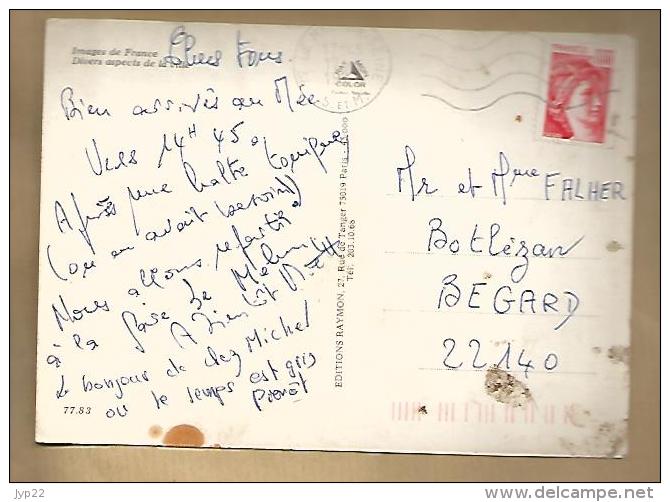 Images de France
Divers aspects de la ville
Chers tous
Bien arrivés au Mée
Vers 14H 45
Après une halte
(on en avait besoin)
Nous allons repartir
à la gare de Melun
A Bientôt
Le bonjour de chez Michel
où le temps est gris
77.83
EDITIONS RAYMON, 27, Rue de Tanger 75019 Paris
Tél. 203.10.68
COLOR
S. ET M.
FRANCE
Mr et Mme FALHER
Botlézan
BEGARD
22140
jyp22
www.delcampe.net